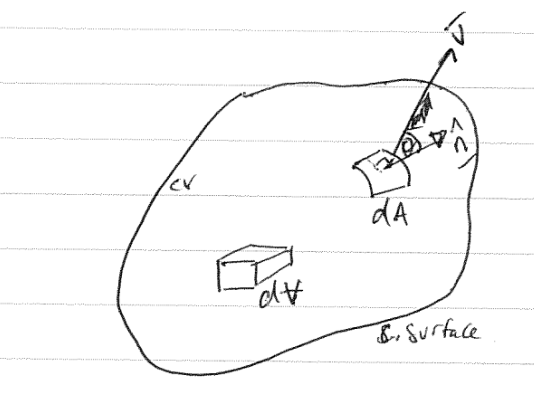 V̄
θ n̂
cv
dA
dV̶
surface